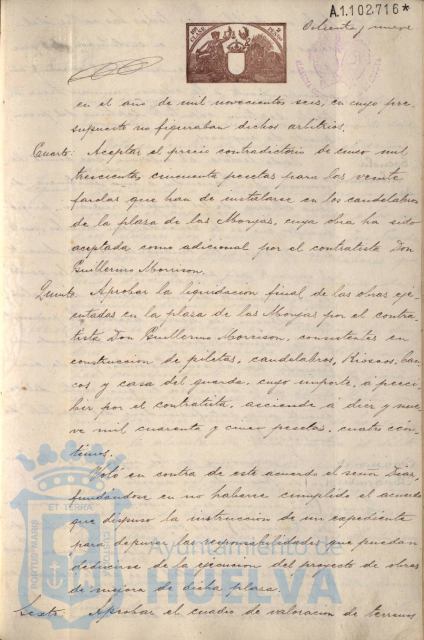 A.1.102.716*
Ochenta y nueve
en el año de mil novecientos seis, en cuyo pre-
supuesto no figuraban dichos arbitrios.
Cuarto: Aceptar el precio contradictorio de cinco mil
trescientas cincuenta pesetas para las veinte
farolas que han de instalarse en los candelabros
de la plaza de las Monjas, cuya obra ha sido
aceptada como adicional por el contratista Don
Guillermo Morrison.
Quinto: Aprobar la liquidación final de las obras eje-
cutadas en la plaza de las Monjas por el contra-
tista Don Guillermo Morrison, consistentes en
construccion de piletas, candelabros, Kioscos, ban-
cos y casa del guarda, cuyo importe, a perci-
bir por el contratista, asciende á diez y nue-
ve mil cuarenta y cinco pesetas, cuatro cén-
timos.
Votó en contra de este acuerdo el señor Diaz,
fundándose en no haberse cumplido el acuerdo
que dispuso la instruccion de un expediente
para depurar las responsabilidades que puedan
deducirse de la ejecucion del proyecto de obras
de mejora de dicha plaza.
Sexto: Aprobar el cuadro de valoracion de terrenos
PORTUS MARIS
ET TERRAE
CUSTODIA
Ayuntamiento de
HUELVA